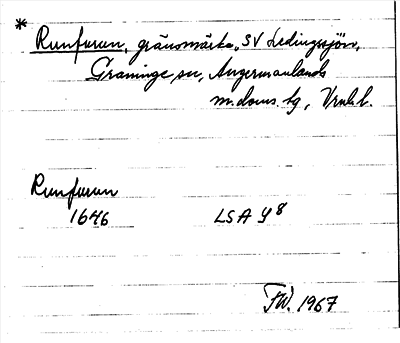 * Runfurun, gränsmärke, SV Ledingssjön,
Graninge sn, Ångermanlands
m. doms. hg,
Runfurun
1646 LSA Y8
FW. 1967